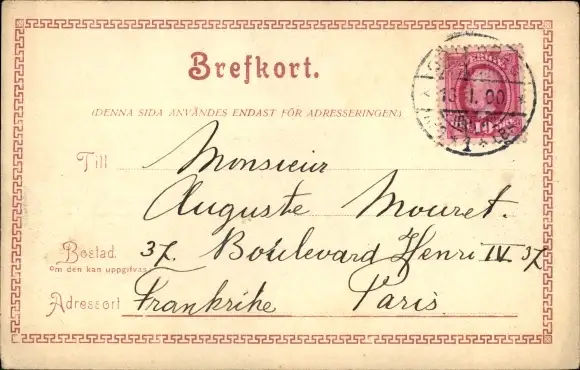 Brefkort.
(DENNA SIDA ANVÄNDES ENDAST FÖR ADRESSERINGEN)
Till Monsieur
Auguste Mouret.
Bostad 37. Boulevard Henri IV 37
om den kan uppgifvas
Adressort Frankrike Paris
SVERIGE
1. 00
10